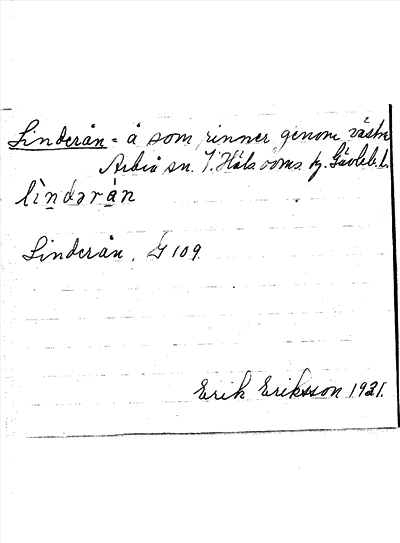 Linderån = å som rinner genom västra
Arbrå sn. V. Häls. doms. hg. Gävleb. l.
lìndəràn
Linderån, G 109.
Erik Eriksson 1931.